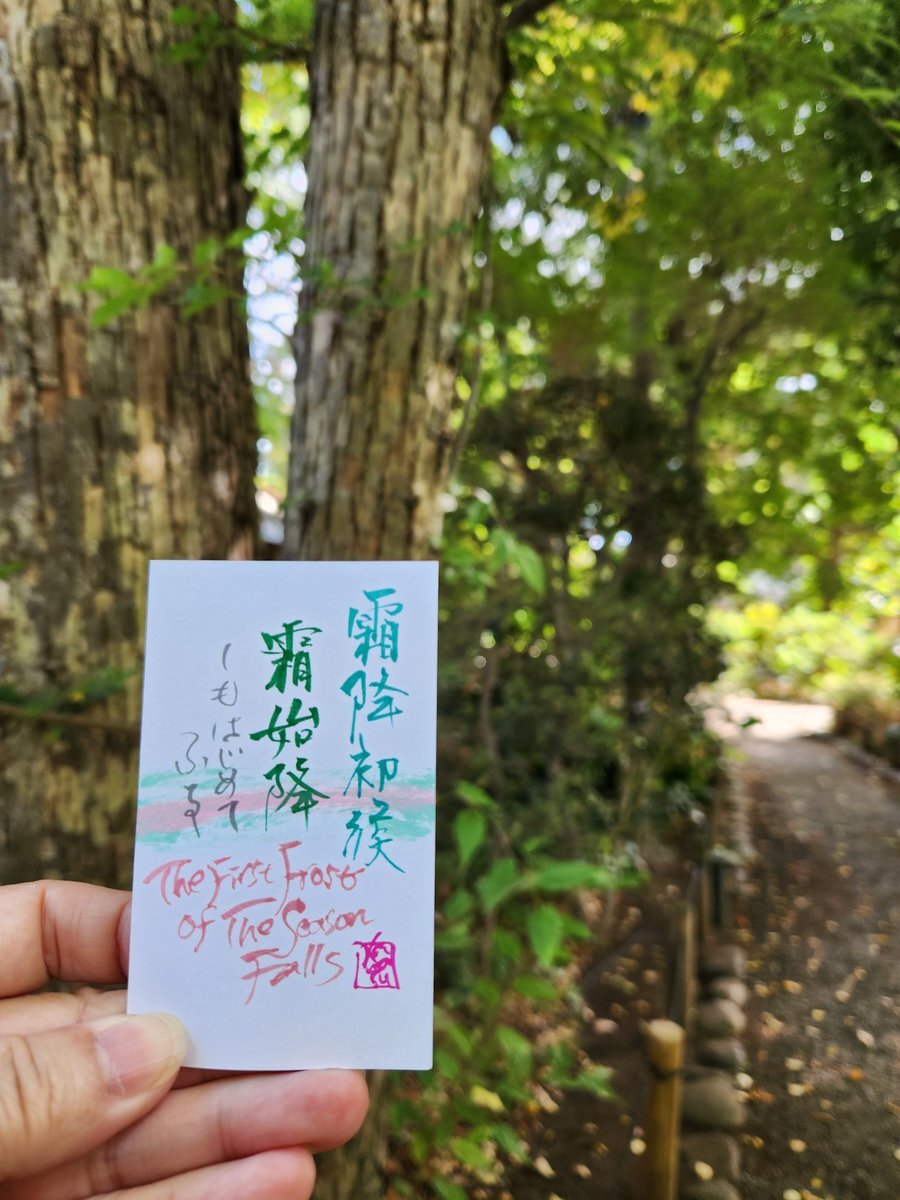 霜降初候
霜始降
しもはじめて
ふる
The First Frost
of The Season
Falls